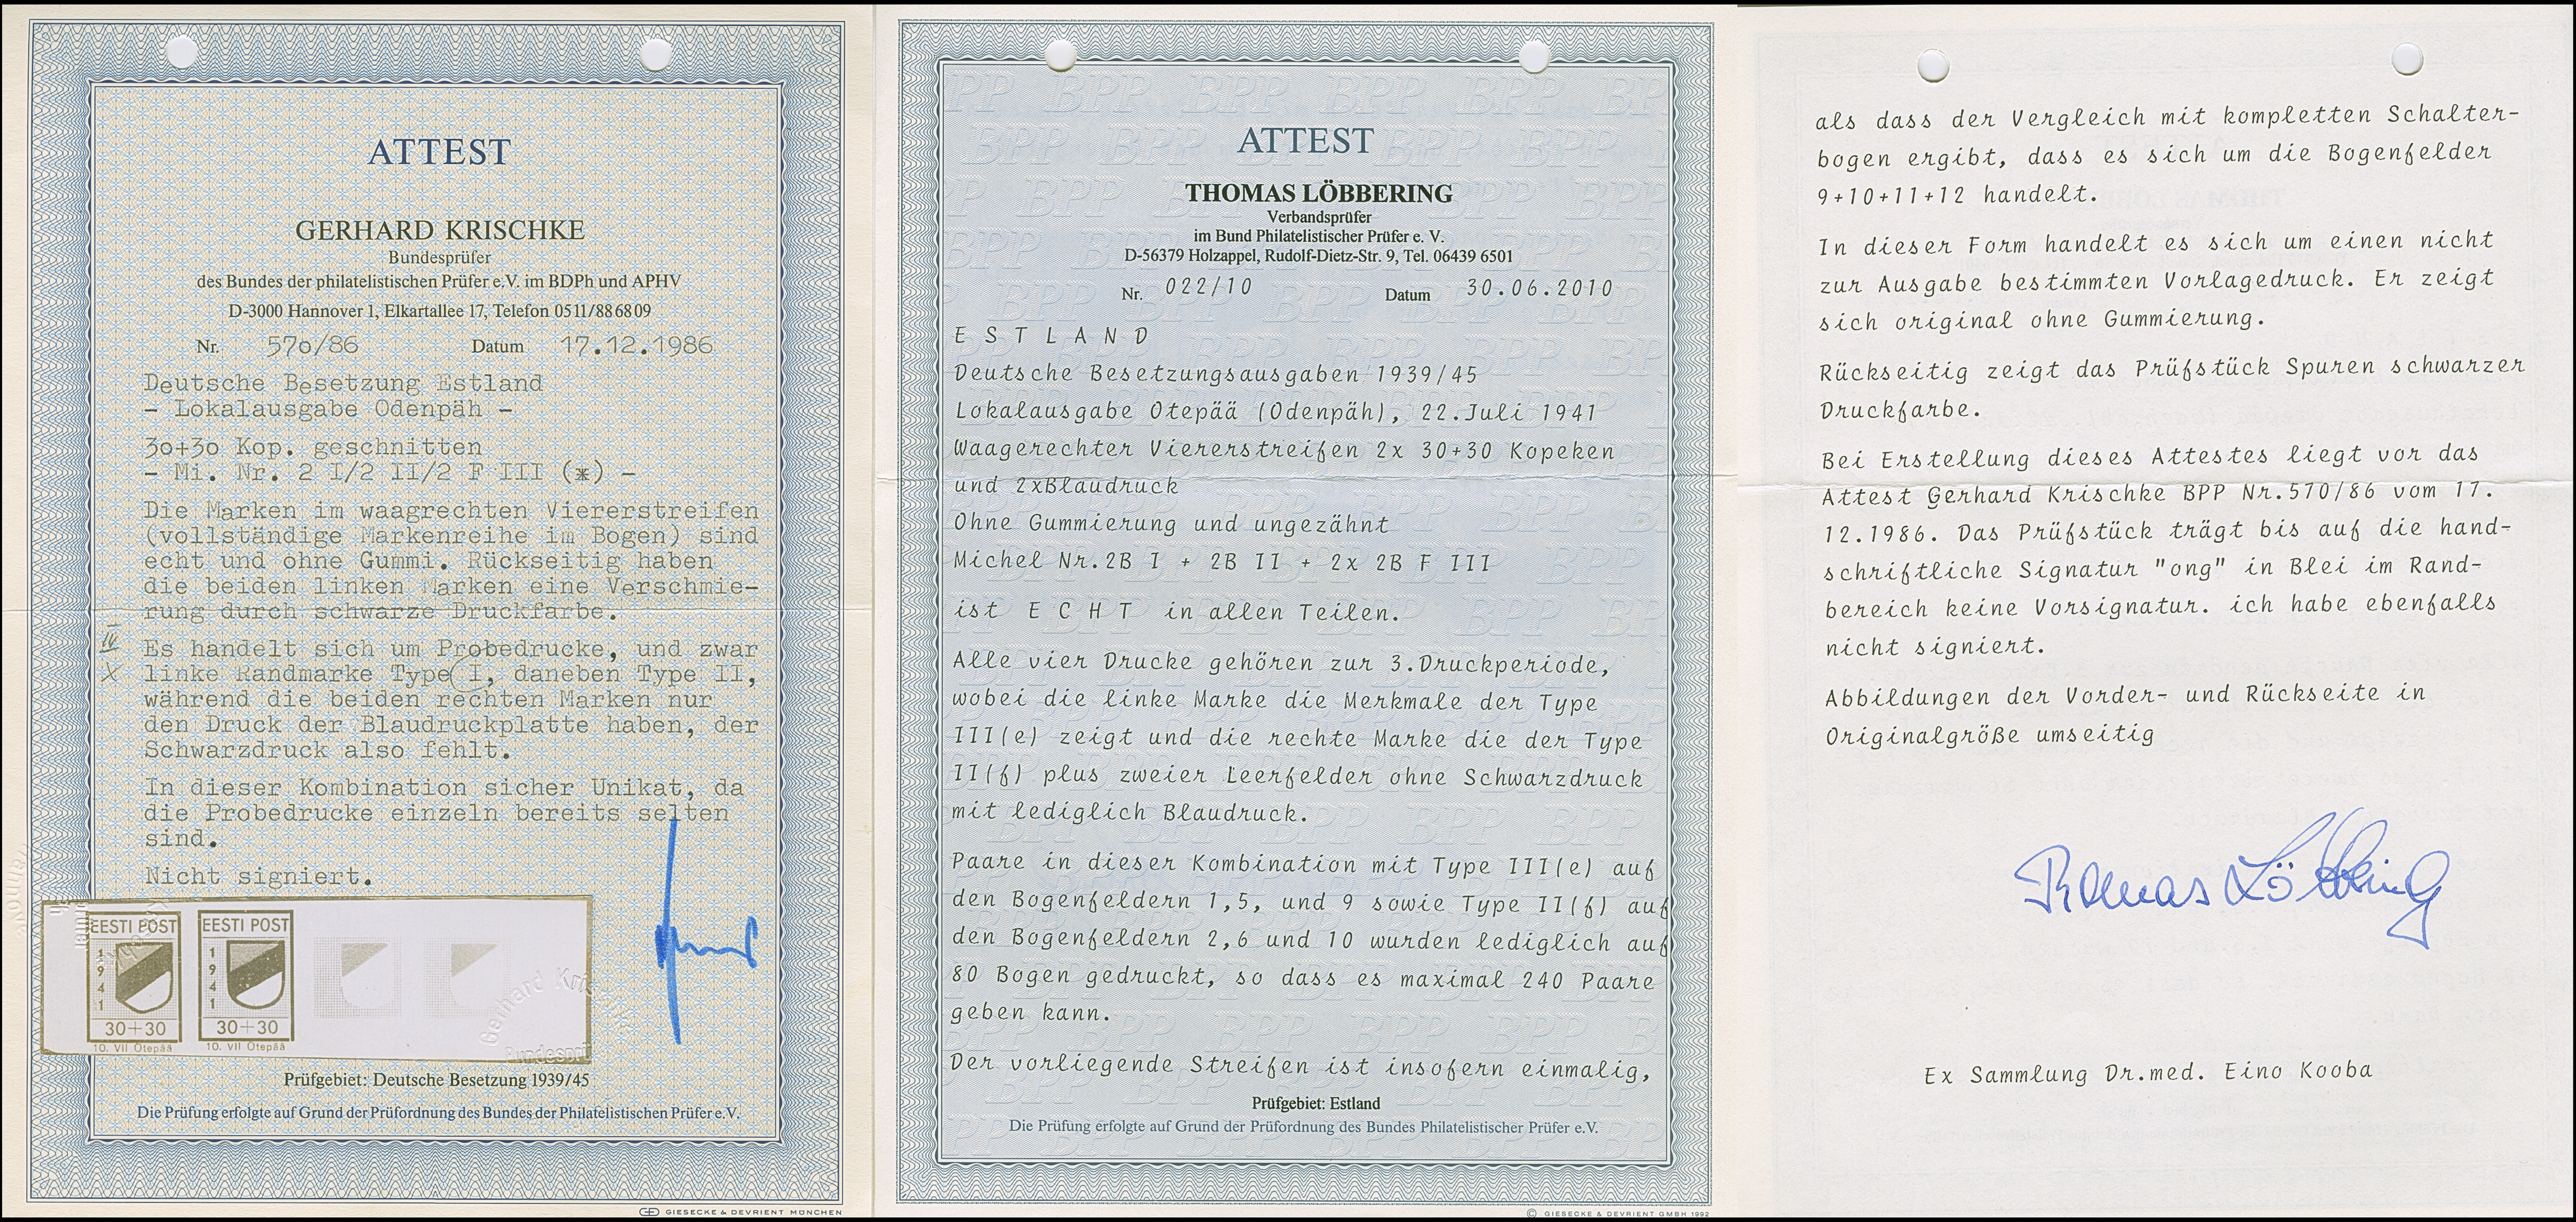 ATTEST
GERHARD KRISCHKE
Bundesprüfer
des Bundes der philatelistischen Prüfer e.V. im BDPh und APHV
D-3000 Hannover 1, Elkartallee 17, Telefon 0511/886809
Nr. 570/86 Datum 17.12.1986
Deutsche Besetzung Estland
- Lokalausgabe Odenpäh -
30+30 Kop. geschnitten
- Mi. Nr. 2 I/2 II/2 F III (*) -
Die Marken im waagrechten Viererstreifen
(vollständige Markenreihe im Bogen) sind
echt und ohne Gummi. Rückseitig haben
die beiden linken Marken eine Verschmie-
rung durch schwarze Druckfarbe.
Es handelt sich um Probedrucke, und zwar
linke Randmarke Type I, daneben Type II,
während die beiden rechten Marken nur
den Druck der Blaudruckplatte haben, der
Schwarzdruck also fehlt.
In dieser Kombination sicher Unikat, da
die Probedrucke einzeln bereits selten
sind.
Nicht signiert.
EESTI POST
1941
30+30
10. VII Otepää
EESTI POST
1941
30+30
10. VII Otepää
Gerhard Kri
Bundespr
Prüfgebiet: Deutsche Besetzung 1939/45
Die Prüfung erfolgte auf Grund der Prüfordnung des Bundes der Philatelistischen Prüfer e.V.
GIESECKE & DEVRIENT MÜNCHEN
ATTEST
THOMAS LÖBBERING
Verbandsprüfer
im Bund Philatelistischer Prüfer e. V.
D-56379 Holzappel, Rudolf-Dietz-Str. 9, Tel. 06439 6501
Nr. 022/10 Datum 30.06.2010
E S T L A N D
Deutsche Besetzungsausgaben 1939/45
Lokalausgabe Otepää (Odenpäh), 22.Juli 1941
Waagerechter Viererstreifen 2x 30+30 Kopeken
und 2xBlaudruck
Ohne Gummierung und ungezähnt
Michel Nr.2B I + 2B II + 2x 2B F III
ist E C H T in allen Teilen.
Alle vier Drucke gehören zur 3.Druckperiode,
wobei die linke Marke die Merkmale der Type
III(e) zeigt und die rechte Marke die der Type
II(f) plus zweier Leerfelder ohne Schwarzdruck
mit lediglich Blaudruck.
Paare in dieser Kombination mit Type III(e) auf
den Bogenfeldern 1,5, und 9 sowie Type II(f) auf
den Bogenfeldern 2,6 und 10 wurden lediglich auf
80 Bogen gedruckt, so dass es maximal 240 Paare
geben kann.
Der vorliegende Streifen ist insofern einmalig,
Prüfgebiet: Estland
Die Prüfung erfolgte auf Grund der Prüfordnung des Bundes Philatelistischer Prüfer e.V.
© GIESECKE & DEVRIENT GMBH 1992
als dass der Vergleich mit kompletten Schalter-
bogen ergibt, dass es sich um die Bogenfelder
9+10+11+12 handelt.
In dieser Form handelt es sich um einen nicht
zur Ausgabe bestimmten Vorlagedruck. Er zeigt
sich original ohne Gummierung.
Rückseitig zeigt das Prüfstück Spuren schwarzer
Druckfarbe.
Bei Erstellung dieses Attestes liegt vor das
Attest Gerhard Krischke BPP Nr.570/86 vom 17.
12.1986. Das Prüfstück trägt bis auf die hand-
schriftliche Signatur "ong" in Blei im Rand-
bereich keine Vorsignatur. ich habe ebenfalls
nicht signiert.
Abbildungen der Vorder- und Rückseite in
Originalgröße umseitig
Thomas Löbbering
Ex Sammlung Dr.med. Eino Kooba